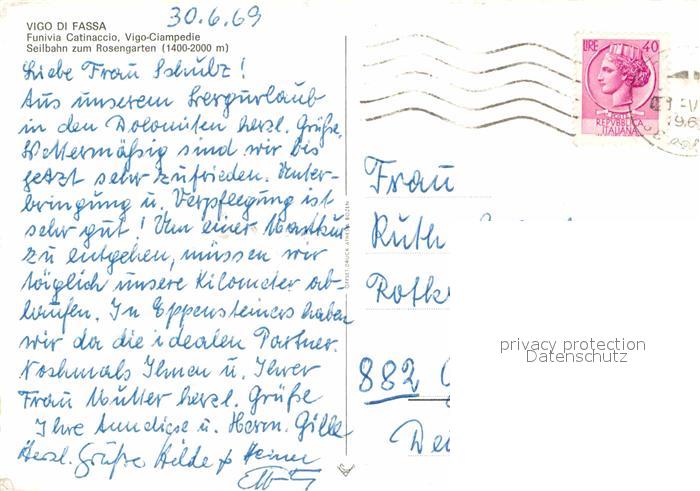 30.6.69
VIGO DI FASSA
Funivia Catinaccio, Vigo-Ciampedie
Seilbahn zum Rosengarten (1400-2000 m)
Liebe Frau Schulz!
Aus unserem Bergurlaub
in den Dolomiten herzl. Grüße.
Wettermäßig sind wir bis
jetzt sehr zufrieden. Unter-
bringung u. Verpflegung ist
sehr gut! Um einer Mastkur
zu entgehen, müssen wir
täglich unsere Kilometer ab-
laufen. In Eppensteiners haben
wir da die idealen Partner.
Nochmals Ihnen u. Ihrer
Frau Mutter herzl. Grüße
Ihre u. Herm. Gille
Herzl. Grüße Hilde
LIRE 40
REPVBBLICA
ITALIANA
Frau
Ruth
882
privacy protection
Datenschutz